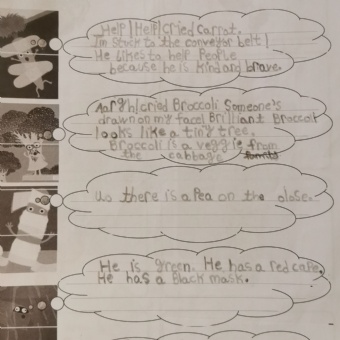 Help! Help! cried Carrot.
I'm stuck to the conveyor belt!
He likes to help People
because he is kind and brave.
Aargh! cried Broccoli Someone's
drawn on my face! Brilliant Broccoli
looks like a tiny tree.
Broccoli is a veggie from
the cabbage
there is a Pea on the
He is green. He has a red cape.
He has a Black mask.